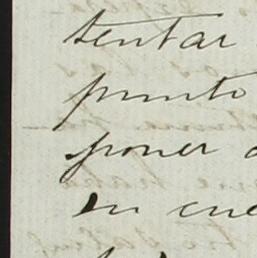 tentar
punto
poner
en cue